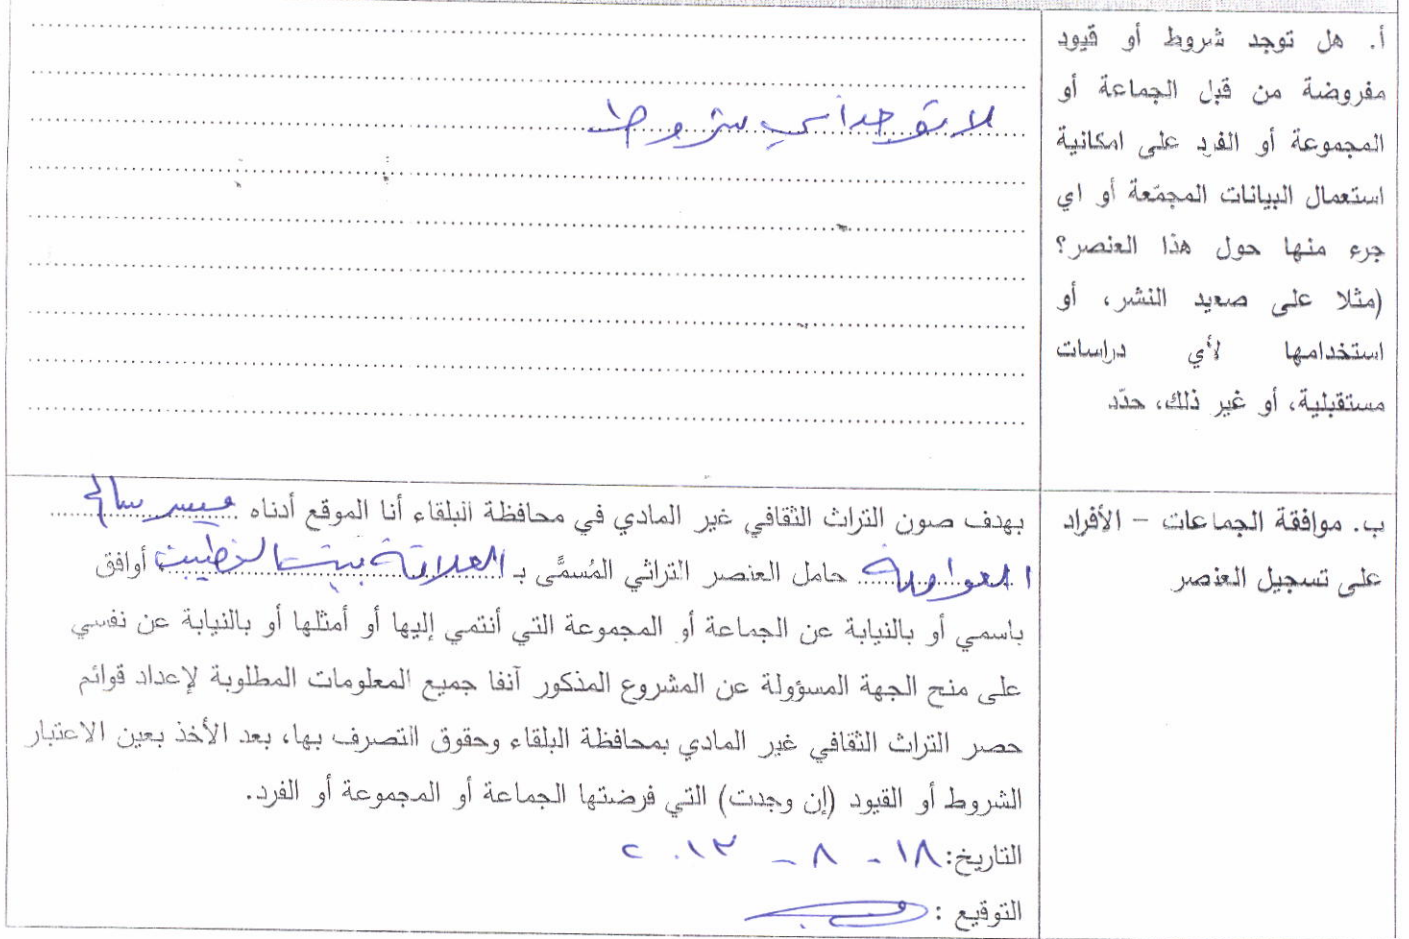 أ. هل توجد شروط أو قيود
مفروضة من قبل الجماعة أو
المجموعة أو الفرد على امكانية
استعمال البيانات المجمّعة أو اي
جزء منها حول هذا العنصر؟
(مثلا على صعيد النشر، أو
استخدامها لأي دراسات
مستقبلية، أو غير ذلك، حدّد
لا توجد أي شروط
ب. موافقة الجماعات - الأفراد
على تسجيل العنصر
بهدف صون التراث الثقافي غير المادي في محافظة البلقاء أنا الموقع أدناه ميسر سالم
العواملة حامل العنصر التراثي المُسمَّى بـ العلاقة بيت الخطيبين أوافق
باسمي أو بالنيابة عن الجماعة أو المجموعة التي أنتمي إليها أو أمثلها أو بالنيابة عن نفسي
على منح الجهة المسؤولة عن المشروع المذكور آنفا جميع المعلومات المطلوبة لإعداد قوائم
حصر التراث الثقافي غير المادي بمحافظة البلقاء وحقوق التصرف بها، بعد الأخذ بعين الاعتبار
الشروط أو القيود (إن وجدت) التي فرضتها الجماعة أو المجموعة أو الفرد.
التاريخ: ١٨ - ٨ - ٢٠١٣
التوقيع :